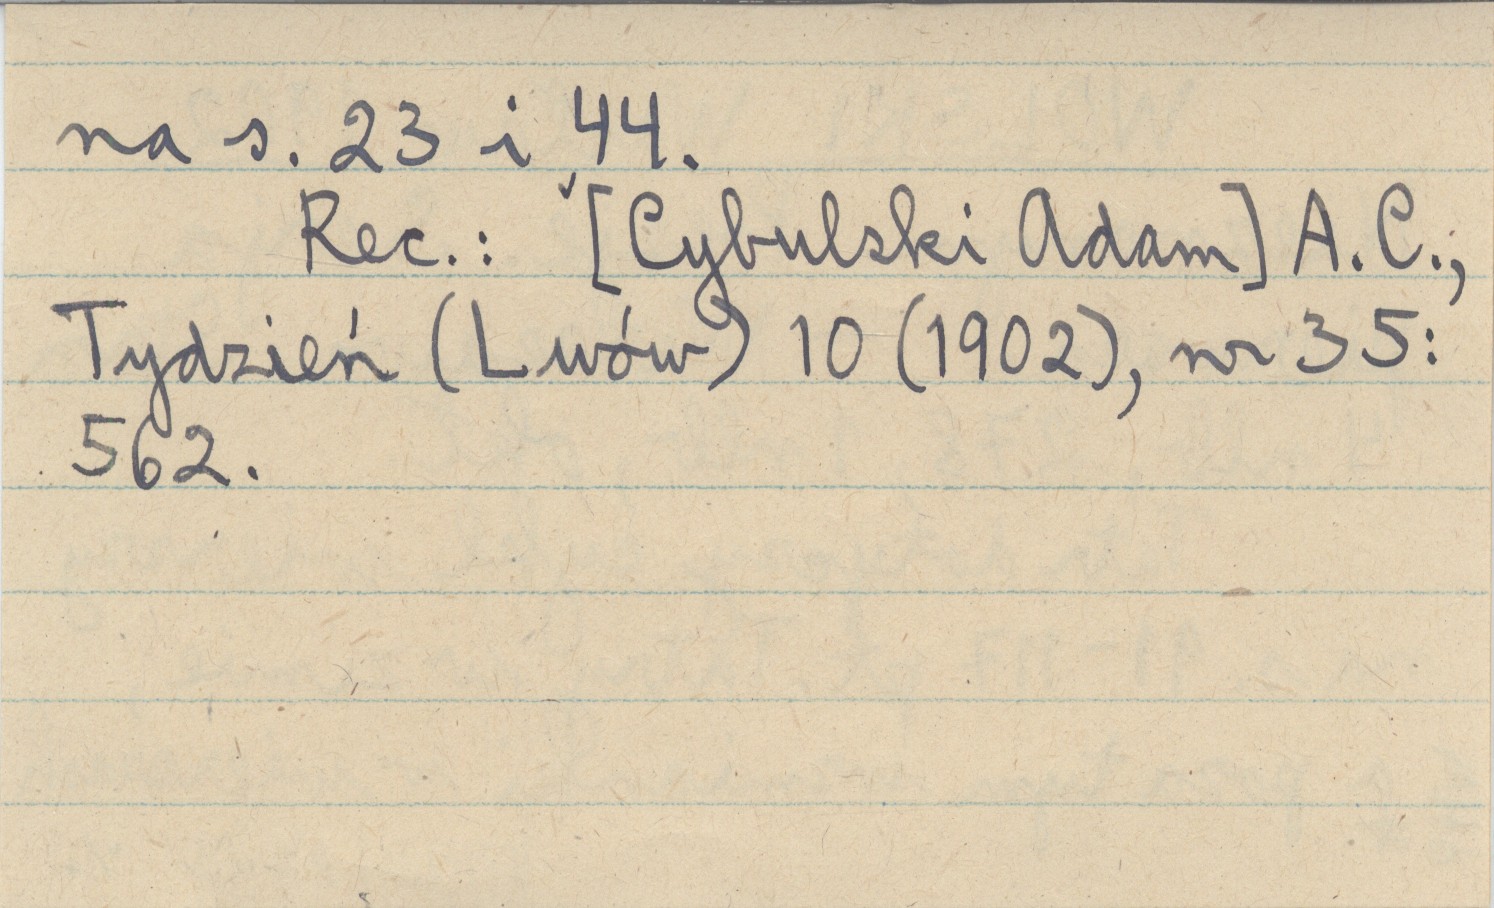 na s. 23 i 44.
Rec.: [Cybulski Adam] A.C.,
Tydzień (Lwów) 10 (1902), nr 35:
562.